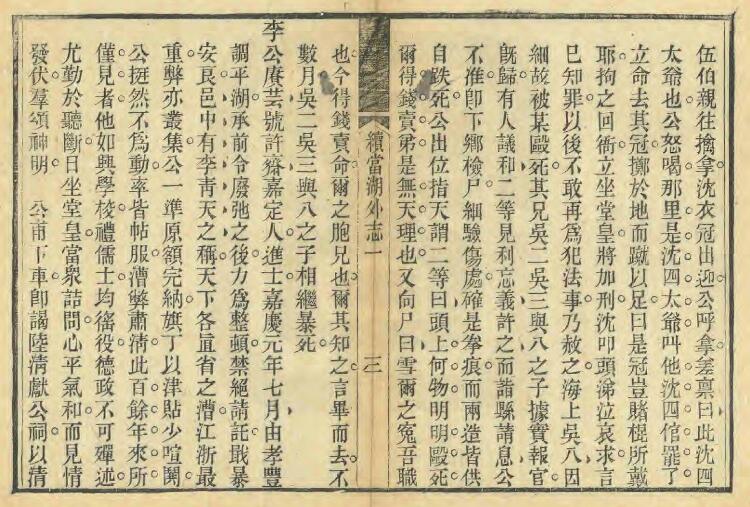 伍伯親往擒拿沈衣冠出迎公呼拿差稟曰此沈四
太爺也公怒喝那里是沈四太爺叫他沈四倌罷了
立命去其冠擲於地而蹴以足曰是冠豈賭棍所戴
耶拘之回衙立坐堂皇將加刑沈叩頭涕泣哀求言
已知罪以後不敢再爲犯法事乃赦之海上吳八因
細故被某毆死其兄吳二吳三與八之子據實報官
旣歸有人議和二等見利忘義許之而詣縣請息公
不准卽下鄉檢尸細驗傷處確是拳痕而兩造皆供
自跌死公出位指天謂二等曰頭上何物明明毆死
爾得錢賣弟是無天理也又向尸曰雪爾之冤吾職
續當湖外志一
三
也今得錢賣命爾之胞兄也爾其知之言畢而去不
數月吳二吳三與八之子相繼暴死
李公廌芸號許齋嘉定人進士嘉慶元年七月由孝豐
調平湖承前令廢弛之後力爲整頓禁絕請託戢暴
安良邑中有李靑天之稱天下各直省之漕江浙最
重弊亦叢集公一準原額完納旗丁以津貼少喧鬨
公挺然不爲動率皆帖服漕弊肅淸此百餘年來所
僅見者他如興學校禮儒士均徭役德政不可殫述
尤勤於聽斷日坐堂皇當衆詰問心平氣和而見情
發伏羣頌神明　公甫下車卽謁陸淸獻公祠以淸